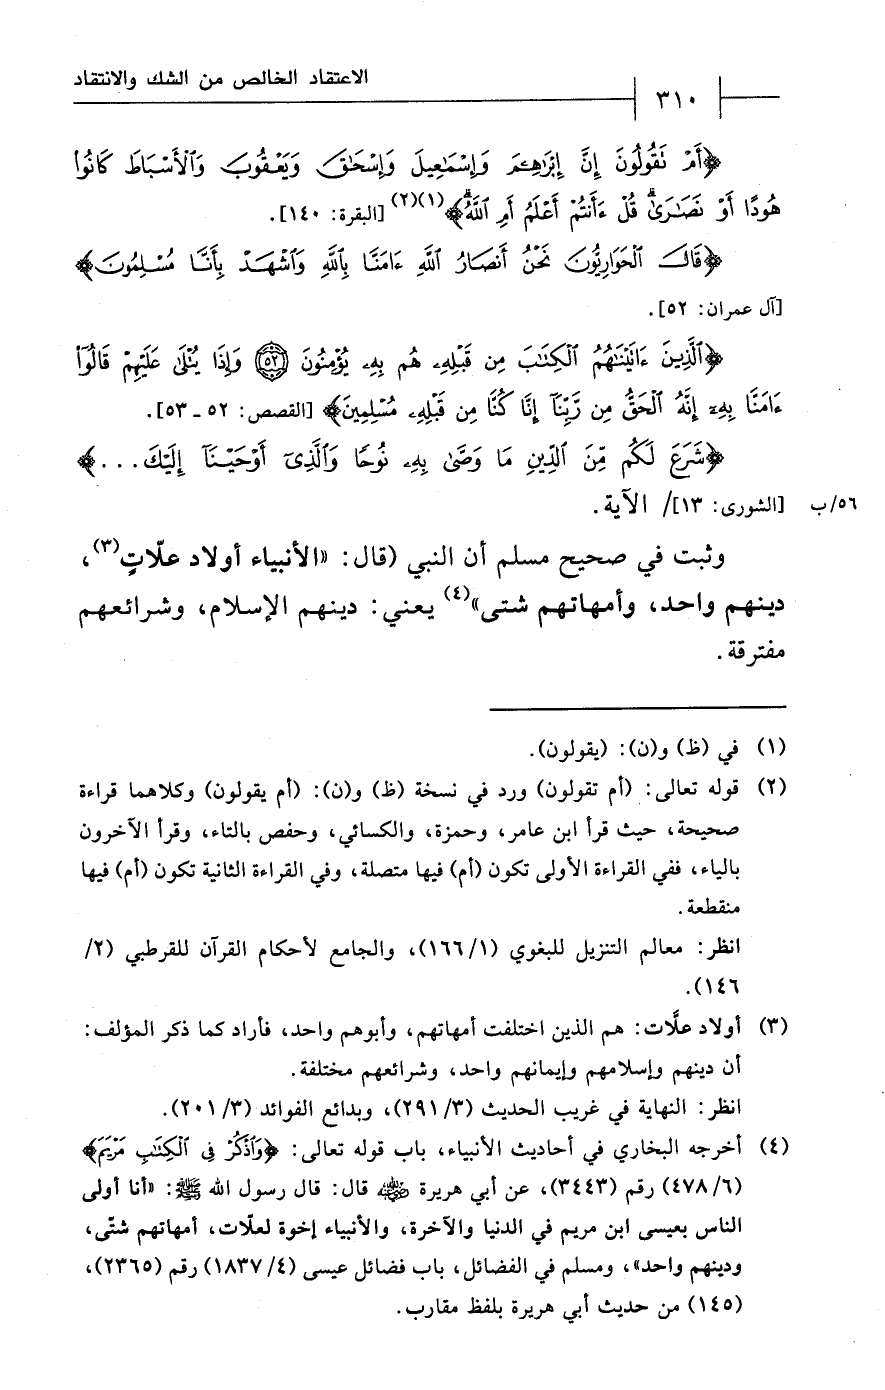 الاعتقاد الخالص من الشك والانتقاد
٣١٠
﴿أَمْ تَقُولُونَ إِنَّ إِبْرَاهِيمَ وَإِسْمَاعِيلَ وَإِسْحَاقَ وَيَعْقُوبَ وَالْأَسْبَاطَ كَانُوا
هُودًا أَوْ نَصَارَىٰ قُلْ ءَأَنتُمْ أَعْلَمُ أَمِ اللَّهُ﴾(١)(٢) [البقرة: ١٤٠].
﴿قَالَ الْحَوَارِيُّونَ نَحْنُ أَنصَارُ اللَّهِ ءَامَنَّا بِاللَّهِ وَاشْهَدْ بِأَنَّا مُسْلِمُونَ﴾
[آل عمران: ٥٢].
﴿الَّذِينَ ءَاتَيْنَاهُمُ الْكِتَابَ مِن قَبْلِهِ هُم بِهِ يُؤْمِنُونَ ٥٢ وَإِذَا يُتْلَىٰ عَلَيْهِمْ قَالُوا
ءَامَنَّا بِهِ إِنَّهُ الْحَقُّ مِن رَّبِّنَا إِنَّا كُنَّا مِن قَبْلِهِ مُسْلِمِينَ﴾ [القصص: ٥٢ ـ ٥٣].
﴿شَرَعَ لَكُم مِّنَ الدِّينِ مَا وَصَّىٰ بِهِ نُوحًا وَالَّذِي أَوْحَيْنَا إِلَيْكَ...﴾
[الشورى: ١٣]/ الآية. ٥٦/ب
وثبت في صحيح مسلم أن النبي (قال: «الأنبياء أولاد علّاتٍ(٣)،
دينهم واحد، وأمهاتهم شتى»(٤) يعني: دينهم الإسلام، وشرائعهم
مفترقة.
(١) في (ظ) و(ن): (يقولون).
(٢) قوله تعالى: (أم تقولون) ورد في نسخة (ظ) و(ن): (أم يقولون) وكلاهما قراءة
صحيحة، حيث قرأ ابن عامر، وحمزة، والكسائي، وحفص بالتاء، وقرأ الآخرون
بالياء، ففي القراءة الأولى تكون (أم) فيها متصلة، وفي القراءة الثانية تكون (أم) فيها
منقطعة.
انظر: معالم التنزيل للبغوي (١/١٦٦)، والجامع لأحكام القرآن للقرطبي (٢/
١٤٦).
(٣) أولاد علَّات: هم الذين اختلفت أمهاتهم، وأبوهم واحد، فأراد كما ذكر المؤلف:
أن دينهم وإسلامهم وإيمانهم واحد، وشرائعهم مختلفة.
انظر: النهاية في غريب الحديث (٣/٢٩١)، وبدائع الفوائد (٣/٢٠١).
(٤) أخرجه البخاري في أحاديث الأنبياء، باب قوله تعالى: ﴿وَاذْكُرْ فِي الْكِتَابِ مَرْيَمَ﴾
(٦/٤٧٨) رقم (٣٤٤٣)، عن أبي هريرة رضي الله عنه قال: قال رسول الله ﷺ: «أنا أولى
الناس بعيسى ابن مريم في الدنيا والآخرة، والأنبياء إخوة لعلّات، أمهاتهم شتّى،
ودينهم واحد»، ومسلم في الفضائل، باب فضائل عيسى (٤/١٨٣٧) رقم (٢٣٦٥)،
(١٤٥) من حديث أبي هريرة بلفظ مقارب.